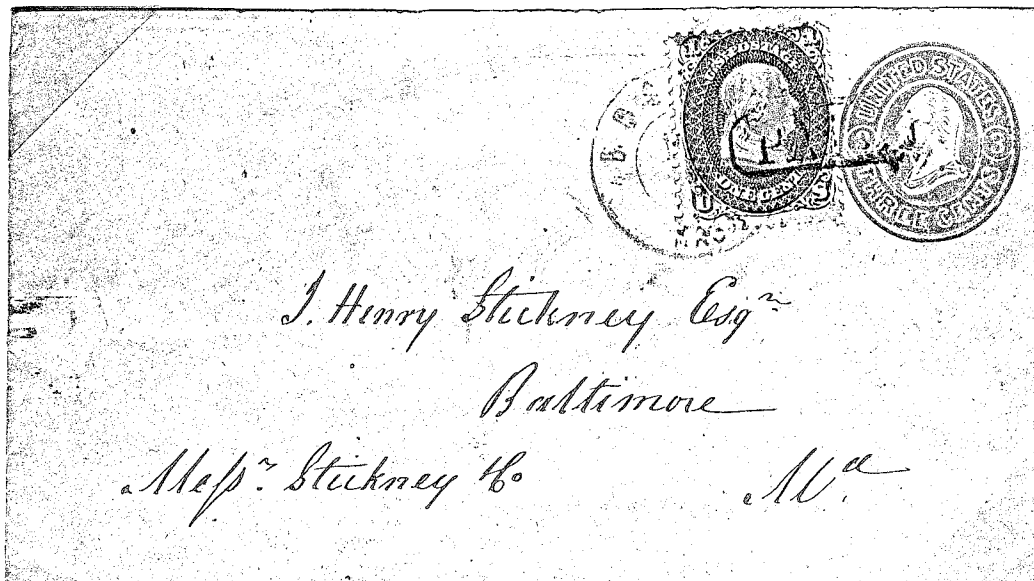 UNITED STATES
THREE CENTS
J. Henry Stickney Esqr
Baltimore
Messrs. Stickney & Co
Md.